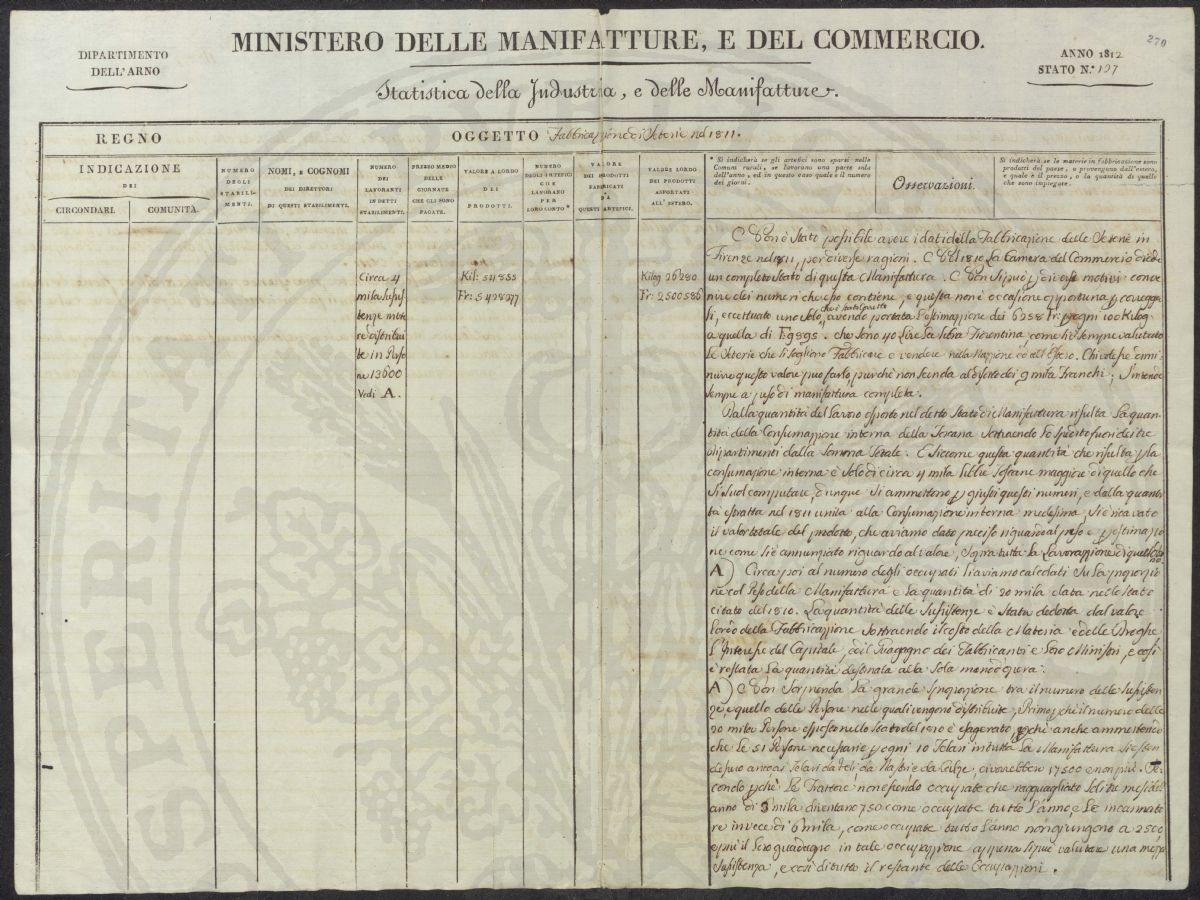 270
DIPARTIMENTO
DELL'ARNO
MINISTERO DELLE MANIFATTURE, E DEL COMMERCIO.
ANNO 1812
STATO N.° 127
Statistica della Industria, e delle Manifatture.
REGNO
OGGETTO Fabbricazione di Seterie nel 1811.
INDICAZIONE
DEI
CIRCONDARI.
COMUNITÀ.
NUMERO
DEGLI
STABILI-
MENTI.
NOMI, E COGNOMI
DEI DIRETTORI
DI QUESTI STABILIMENTI.
NUMERO
DEI
LAVORANTI
IN DETTI
STABILIMENTI.
PREZZO MEDIO
DELLE
GIORNATE
CHE GLI SONO
PAGATE.
VALORE A LORDO
DEI
PRODOTTI.
NUMERO
DEGLI ARTEFICI
CHE
LAVORANO
PER
LORO CONTO *
VALORE
DEI PRODOTTI
FABBRICATI
DA
QUESTI ARTEFICI.
VALORE LORDO
DEI PRODOTTI
ASPORTATI
ALL'ESTERO.
* Si indicherà se gli artefici sono sparsi nelle
Comuni rurali, se lavorano una parte sola
dell'anno, ed in questo caso quale è il numero
dei giorni.
Osservazioni.
Si indicherà se le materie in fabbricazione sono
prodotti del paese, o provengono dall'estero,
e quale è il prezzo, o la quantità di quelle
che sono impiegate.
Circa 4
mila Sussis
tenze intie
re distribui
te in Perso
ne 13600
Vedi A.
Kil: 54855
Fr: 5428977
Kilog 26280
Fr: 2500586
Non è stato possibile avere i dati della Fabbricazione delle Seterie in
Firenze nel 1811, per diverse ragioni. Nel 1810 La Camera del Commercio diede
un completo Stato di questa Manifattura. Non si può p diversi motivi conve
nire dei numeri che esso contiene, e questa non è occasione opportuna p correg
si, eccettuato uno solo, avendo portata l'estimazione dei 6258 Fr: p ogni 100 Kilog
a quella di F 9895. che sono 40 Lire la libbra Fiorentina, come si è sempre valutato
le Seterie che si sogliono Fabbricare e vendere nella Nazione ed all'Estero. Chi volesse dimi
nuire questo valore può farlo, purchè non scenda al disotto dei 9 mila Franchi; S'intende
sempre a peso di manifattura completa.
Dalla quantità del Lavoro esposto nel detto Stato di Manifattura risulta La quan
tità della Consumazione interna della Toscana sottraendo lo spedito fuori dei tre
Dipartimenti dalla somma Totale. E siccome questa quantità che risulta p la
consumazione interna è solo di circa 4 mila libbre toscane maggiore di quello che
si suol computare, dunque si ammettono p giusti questi numeri, e dalla quanti
tà estratta nel 1811 unita alla Consumazione interna medesima, si è ricavato
il valor totale del prodotto, che aviamo dato preciso riguardo al peso e p estimazio
ne come si è annunziato riguardo al valore, sopra tutta la Lavorazione di quell'anno.
A) Circa poi al numero degli occupati li aviamo calcolati su la proporzio
ne col Peso della Manifattura e la quantità di 20 mila data nello Stato
citato del 1810. La quantità delle Sussistenze è stata dedotta dal valore
lordo della Fabbricazione sottraendo il costo della Materia e delle Droghe
l'Interesse del Capitale, ed il Guadagno dei Fabbricanti e Loro Ministri, e così
è restata la quantità destinata alla sola mano d'opera.
A) Non sorprenda la grande sproporzione tra il numero delle Sussisten
ze, e quello delle Persone nelle quali vengono distribuite, Primo p chè il numero delle
20 mila Persone esposto nello Stato del 1810 è esagerato, p chè anche ammettendo
che le 51 Persone necessarie p ogni 10 Telari in tutta la Manifattura si esten
desse ancora ai Telari da veli, da Nastri e da Calze, ciò sarebbe 17500 e non più. Se
condo p chè le Trattore non essendo occupate che ragguagliato soli tre mesi del
anno di 3 mila diventano 750 come occupate tutto l'anno, e Le incannato
re invece di 6 mila, come occupate tutto l'anno non giungono a 2500
e più il Loro guadagno in tale occupazione appena si può valutare una mezza
Sussistenza, e così di tutto il restante delle Occupazioni.